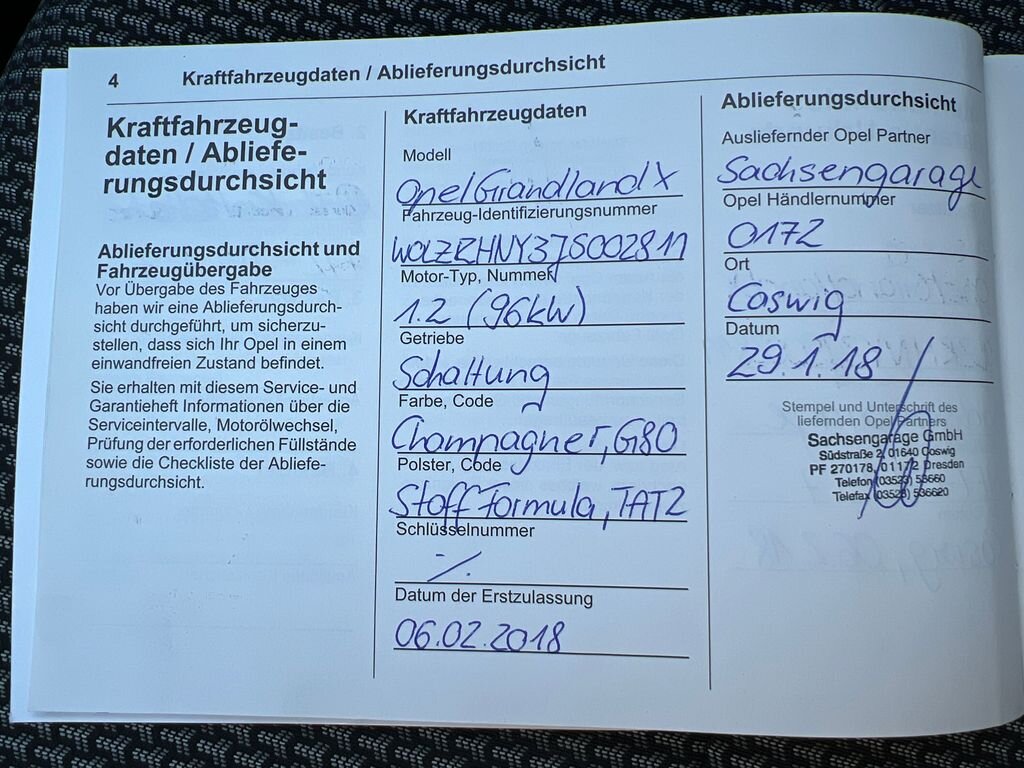 4
Kraftfahrzeugdaten / Ablieferungsdurchsicht
Kraftfahrzeug-
daten / Abliefe-
rungsdurchsicht
Ablieferungsdurchsicht und
Fahrzeugübergabe
Vor Übergabe des Fahrzeuges
haben wir eine Ablieferungsdurch-
sicht durchgeführt, um sicherzu-
stellen, dass sich Ihr Opel in einem
einwandfreien Zustand befindet.
Sie erhalten mit diesem Service- und
Garantieheft Informationen über die
Serviceintervalle, Motorölwechsel,
Prüfung der erforderlichen Füllstände
sowie die Checkliste der Abliefe-
rungsdurchsicht.
Kraftfahrzeugdaten
Modell
Opel Grandland X
Fahrzeug-Identifizierungsnummer
W0LZRHNY3JS002811
Motor-Typ, Nummer
1.2 (96kW)
Getriebe
Schaltung
Farbe, Code
Champagner, G80
Polster, Code
Stoff Formula, TAT2
Schlüsselnummer
Datum der Erstzulassung
06.02.2018
Ablieferungsdurchsicht
Ausliefernder Opel Partner
Sachsengarage
Opel Händlernummer
0172
Ort
Coswig
Datum
29.1.18
Stempel und Unterschrift des
liefernden Opel Partners
Sachsengarage GmbH
Südstraße 2, 01640 Coswig
PF 270178, 01172 Dresden
Telefon (03523) 53660
Telefax (03523) 536620